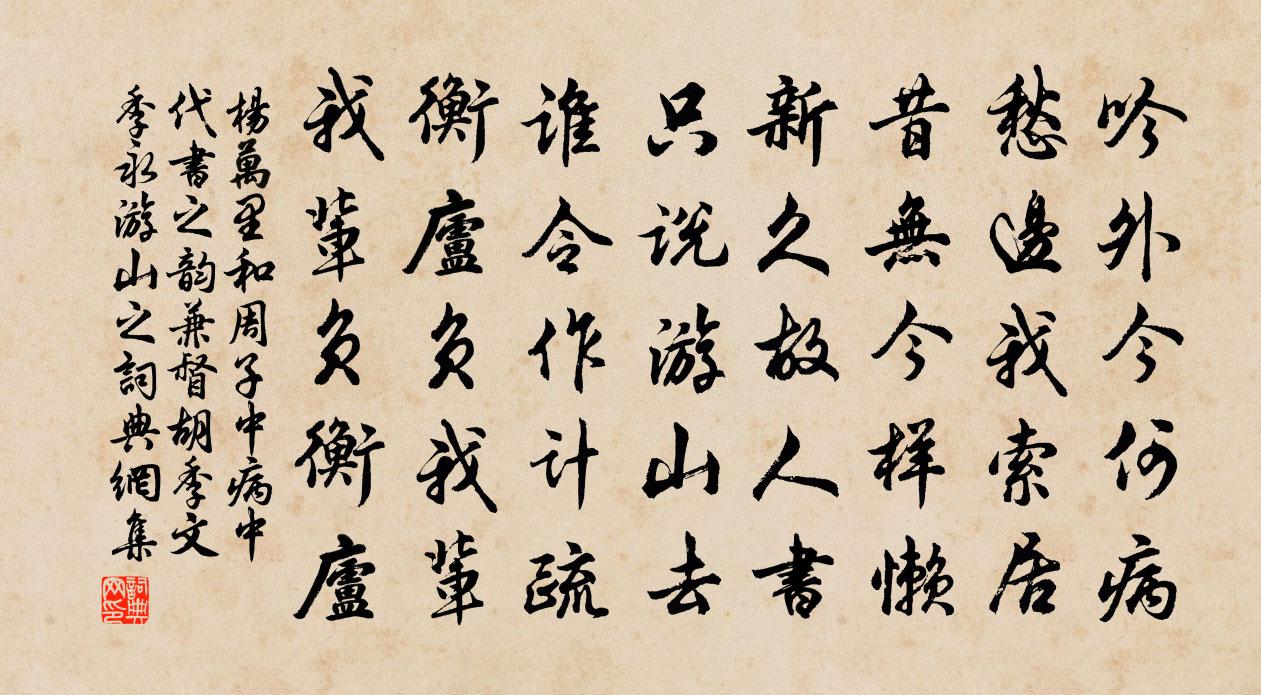 吟外今何病
愁邊我索居
昔無今样懒
新久故人書
只说游山去
谁令作计疏
衡廬负我輩
我輩负衡廬
楊萬里和周子中病中
代書之韵兼督胡季文
季永游山之詞典網集
詞典
网印